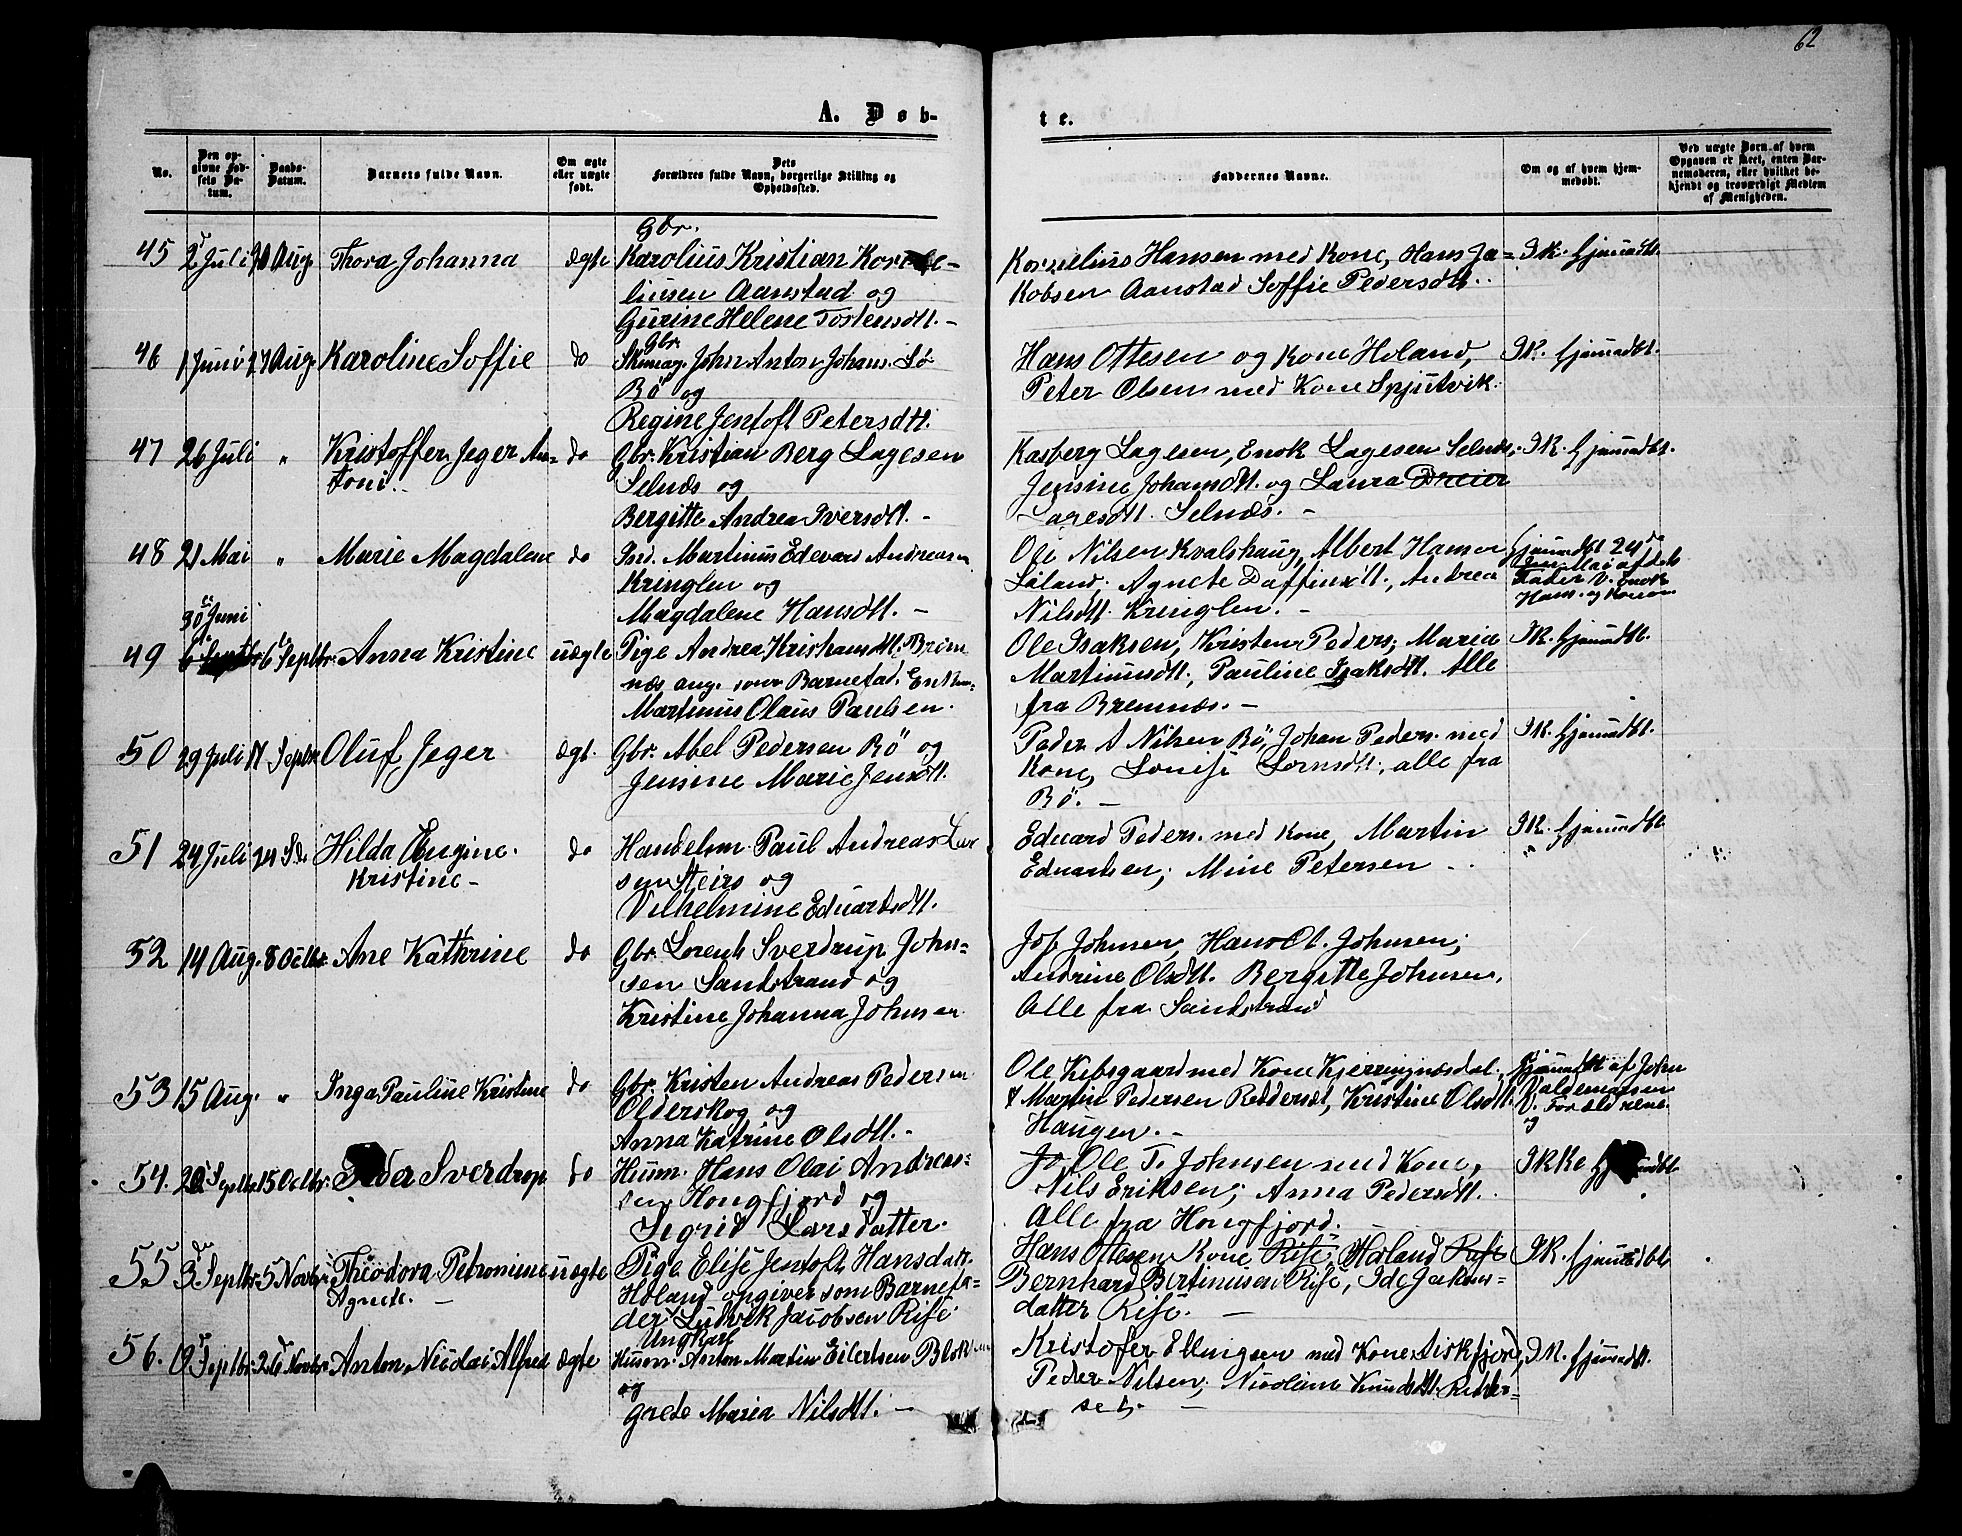 62
A. Døb-
te.
No.
Den op-
givne Fød-
sels Da-
tum.
Daabs-
Datum.
Barnets fulde Navn.
Om ægte
eller uægte
født.
Dets
Forældres fulde Navn, borgerlige Stilling og
Opholdssted.
Faddernes Navne.
Om og af hvem hjem-
medøbt.
Ved uægte Børn, af hvem
Opgaven er skeet, enten Bar-
nemoderen, eller hvilket be-
kjendt og troværdigt Medlem
af Menigheden.
Gbr.
45 2 Juli 20 Aug. Thora Johanna ægte Karolius Kristian Korne-
liusen Aanstad og
Gurine Helene Tostensdtt. -
Kornelius Hansen med Kone, Hans Ja=
kobsen Aanstad Soffie Pedersdtt.
IK. hjemmedbt.
Gbr.
46 1 Juni 27 Aug Karoline Soffie do Skomag. John Anton Johans.
Bö og
Regine Jentoft Petersdtt.
Hans Ottesen og Kone Holand,
Peter Olsen med Kone Spjutvik.
IK. hjemmedbt.
47 26 Juli " Kristoffer Jeger An=
toni. do Gbr. Kristian Berg Lagesen
Selnæs og
Bergitte Andrea Iversdtt. -
Kasberg Lagesen, Enok Lagesen Selnæs,
Jensine Johansdtt. og Laura Dreier
Lagesdtt. Selnæs. -
IK. hjemmedbt.
48 21 Mai " Marie Magdalene do Martinus Edevard Andreasen
Kringlen og
Magdalene Hansdtt. -
Ole Nilsen Kvalshaug, Albert Hansen
Laland, Agnete Daffinsdtt., Andrea
Nilsdtt. Kringlen. -
hjemmedbt 24de
Mai af dets
Fader V. Enok
Hans. og Konen
30 Juni
49 6 Septbr. 6 Septbr. Anna Kristine uægte Pige Andrea Kristiansdtt. Brem
næs ang. som Barnefad. Enkem.
Martinus Olaus Paulsen.
Ole Isaksen, Kristen Peders., Maria
Martinusdtt., Pauline Isaksdtt. Alle
fra Bremnæs. -
IK. hjemmedt.
50 29 Juli 17 Septbr. Oluf Jeger ægt. Gbr. Abel Pedersen Bö og
Jensine Marie Jensdtt.
Peder A Nilsen Bö, Johan Peders. med
Kone, Lovise Lornsdtt., alle fra
Bö. -
IK. hjemmedbt.
51 24 Juli 24 S. Hilda Eugine
Kristine - do Handelsm. Paul Andreas Lar
sen Steirø og
Vilhelmine Eduardsdtt.
Eduard Peders. med Kone, Martin
Eduardsen, Mine Petersen -
IK. hjemmedbt
52 14 Aug. 8 Octbr. Ane Kathrine do Gbr. Lorents Sverdrup John-
sen Sandstrand og
Kristine Johanna Johnsen
Johnsen, Hans Ol. Johnsen,
Andrine Olsdtt. Bergitte Johnsen,
Alle fra Sandstrand
53 15 Aug. " Inga Pauline Kristine do Gbr. Kristen Andreas Pedersen
Olderskog og
Anna Katrine Olsdtt. -
Ole Kibsgaard med Kone Kjerringnæsdal,
Martin Pedersen Reddersæt, Kristine Olsdtt.
Haugen. -
hjemmedt af John
Valdemarsen
V. Forældrene
54. 20 Septbr. 15 Octbr. Peder Sverdrop do Husm. Hans Olai Andreas=
sen Hongfjord og
Sigrid Larsdatter.
Jo Ole T. Johnsen med Kone,
Nils Eriksen, Anna Pedersdtt.
Alle fra Hongfjord.
IKKe
55 3 Septbr. 5 Novbr. Theodora Petronine
Agnete. - uægte Pige Elise Jentoft Hansdatt.
Holand opgiver som Barnefa-
der Ludvik Jacobsen Rise
Ungkarl
Hans Ottesen Kone Rise, Holand Rise
Bernhard Bertinusen Rise, Ide Jakobs=
datter Rise. -
IK. hjemmedbt
56. Septbr. 26 Novbr. Anton Nicolai Alfred ægte Husm. Anton Martin Eilertsen
og
Grete Maria Nilsdtt. -
Kristofer Ellingsen med Kone Fiskfjord,
Peder Nilsen, Nicoline Knudsdtt. Redder=
set. -
IK. hjemmedt.